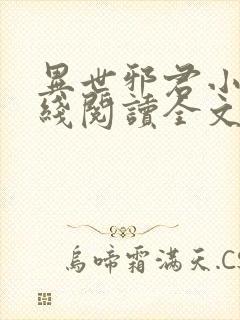 異世邪君小
綫閱讀全文
烏啼霜滿天.CS